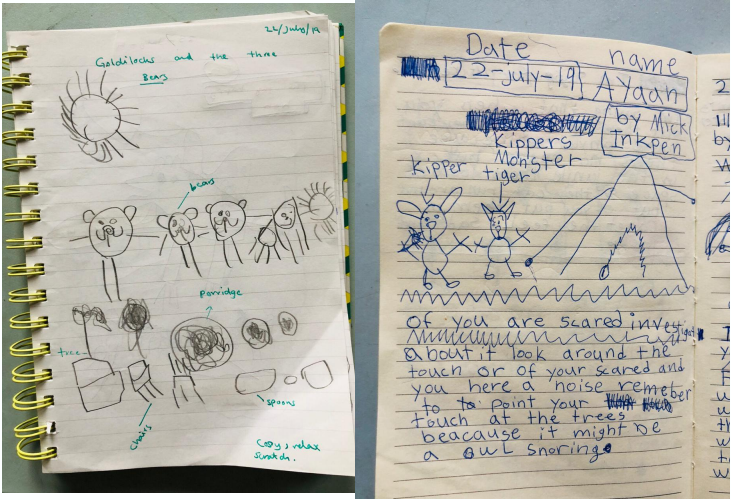 22/July/19
Goldilocks and the three
Bears
bears
Porridge
tree
spoons
chairs
Cosy, relax
scratch.
Date name
22-july-19 AYaan
by Mick
Inkpen
Kippers
Monster
Kipper tiger
of you are scared investigat
about it look around the
touch or of your scared and
you here a noise remeber
to point your
touch at the trees
beacause it might be
a owl snoring.